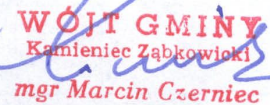 WÓJT GMINY
Kamieniec Ząbkowicki
mgr Marcin Czerniec